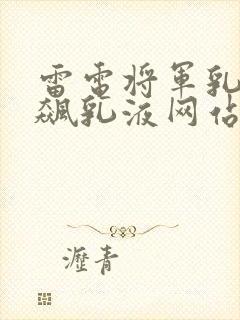 雷电将军乳
飙乳液网站
瀝青